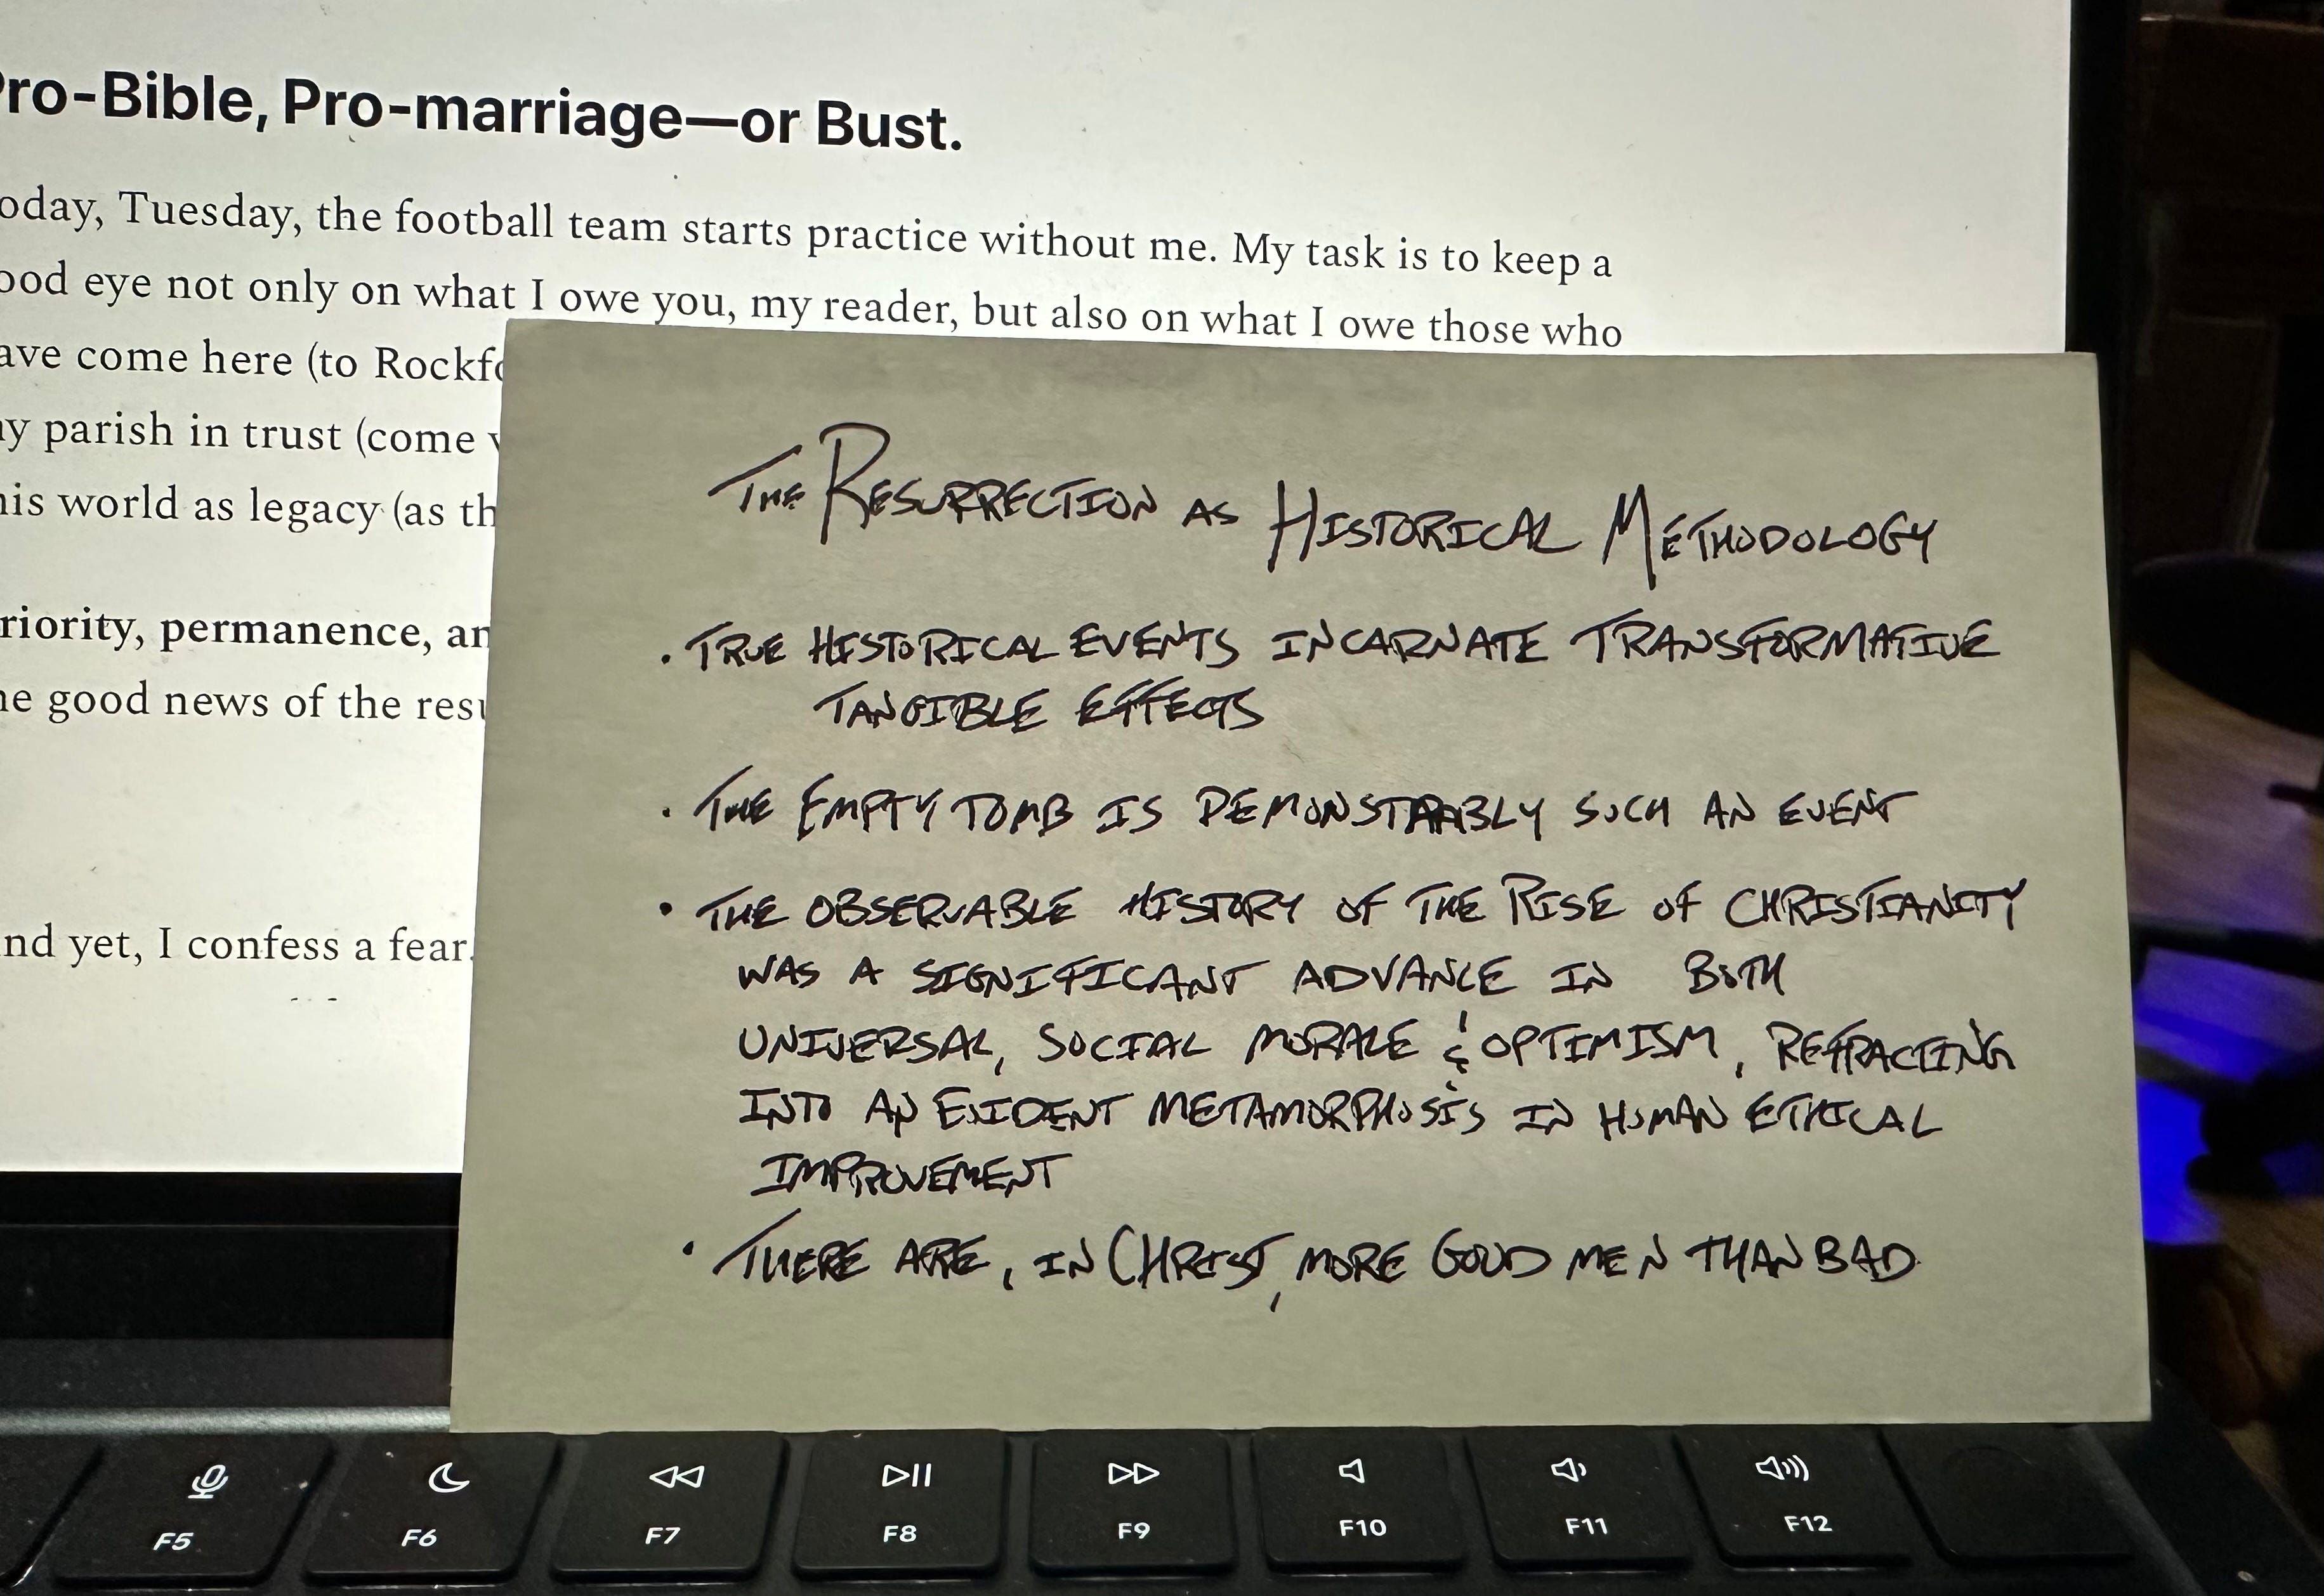 ro-Bible, Pro-marriage—or Bust.
oday, Tuesday, the football team starts practice without me. My task is to keep a
ood eye not only on what I owe you, my reader, but also on what I owe those who
ave come here (to Rockfo
y parish in trust (come
his world as legacy (as th
riority, permanence, an
he good news of the resu
nd yet, I confess a fear.
THE RESURRECTION AS HISTORICAL METHODOLOGY
• TRUE HISTORICAL EVENTS INCARNATE TRANSFORMATIVE
TANGIBLE EFFECTS
• THE EMPTY TOMB IS DEMONSTRABLY SUCH AN EVENT
• THE OBSERVABLE HISTORY OF THE RISE OF CHRISTIANITY
WAS A SIGNIFICANT ADVANCE IN BOTH
UNIVERSAL, SOCIAL MORALE & OPTIMISM, REFRACTING
INTO AN EVIDENT METAMORPHOSIS IN HUMAN ETHICAL
IMPROVEMENT
• THERE ARE, IN CHRIST, MORE GOOD MEN THAN BAD
F5 F6 F7 F8 F9 F10 F11 F12